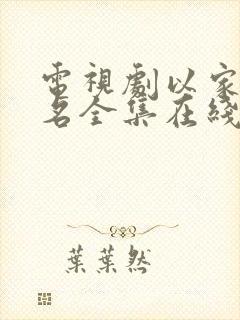 電視劇以家
名全集在綫
葉葉然